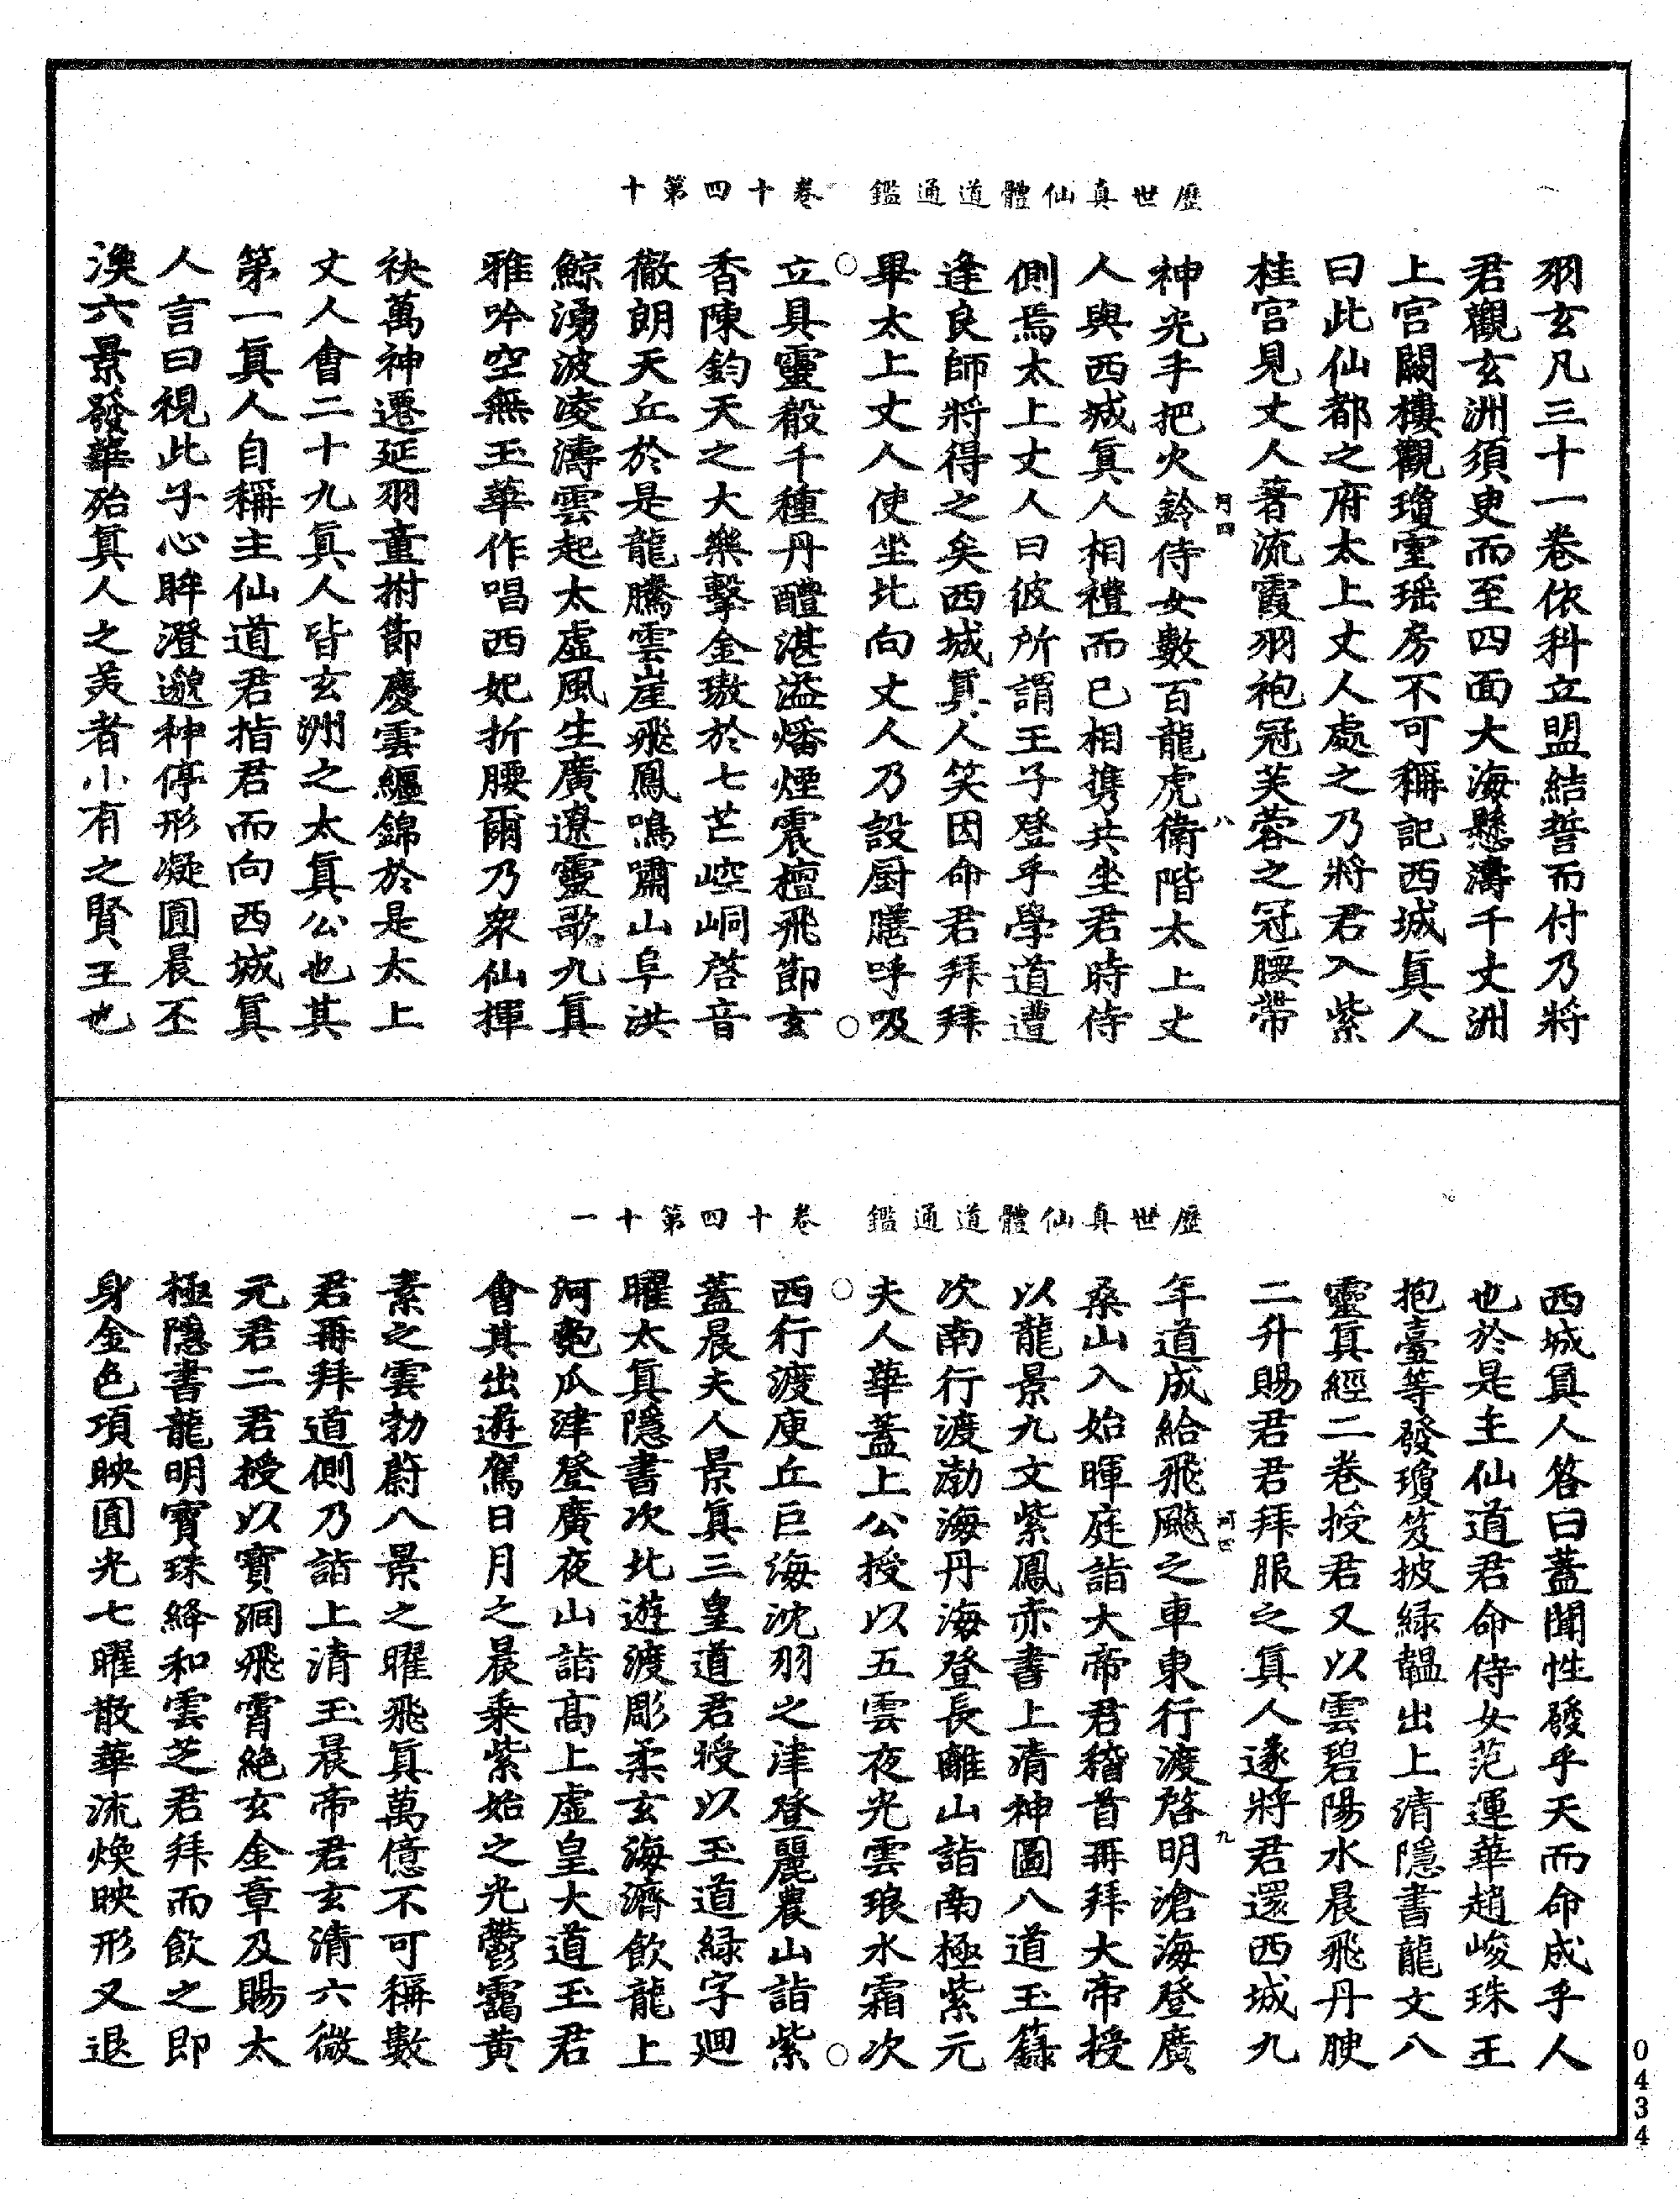 歷世真仙體道通鑑　卷十四第十
羽玄凡三十一卷依科立盟結誓而付乃將
君觀玄洲須臾而至四面大海懸濤千丈洲
上宮闕樓觀瓊室瑶房不可稱記西城真人
曰此仙都之府太上丈人處之乃將君入紫
桂宮見丈人著流霞羽袍冠芙蓉之冠腰帶
神光手把火鈴侍女數百龍虎衛階太上丈
人與西城真人相禮而已相携共坐君時侍
側焉太上丈人曰彼所謂王子登乎學道遭
逢良師將得之矣西城真人笑因命君拜拜
畢太上丈人使坐北向丈人乃設厨膳呼吸
立具靈殽千種丹醴湛溢燔煙震檀飛節玄
香陳鈞天之大樂擊金璈於七芒崆峒啓音
徹朗天丘於是龍騰雲崖飛鳳鳴嘯山阜洪
鯨湧波凌濤雲起太虛風生廣遼靈歌九真
雅吟空無玉華作唱西妃折腰爾乃衆仙揮
袂萬神遷延羽童拊節慶雲纏錦於是太上
丈人會二十九真人皆玄洲之太真公也其
第一真人自稱主仙道君指君而向西城真
人言曰視此子心眸澄邈神停形凝圓晨丕
渙六景發華殆真人之美者小有之賢王也
河四
八
歷世真仙體道通鑑　卷十四第十一
西城真人答曰蓋聞性發乎天而命成乎人
也於是主仙道君命侍女范運華趙峻珠王
抱臺等發瓊笈披緑韞出上清隱書龍文八
靈真經二卷授君又以雲碧陽水晨飛丹腴
二升賜君君拜服之真人遂將君還西城九
年道成給飛飈之車東行渡啓明滄海登廣
桑山入始暉庭詣大帝君稽首再拜大帝授
以龍景九文紫鳳赤書上清神圖八道玉籙
次南行渡渤海丹海登長離山詣南極紫元
夫人華蓋上公授以五雲夜光雲琅水霜次
西行渡庾丘巨海沈羽之津登麗農山詣紫
蓋晨夫人景真三皇道君授以玉道緑字迴
曜太真隱書次北遊渡彫柔玄海濟飲龍上
河匏瓜津登廣夜山詣高上虛皇大道玉君
會其出遊駕日月之晨乘紫始之光鬱靄黃
素之雲勃蔚八景之曜飛真萬億不可稱數
君再拜道側乃詣上清玉晨帝君玄清六微
元君二君授以寶洞飛霄絶玄金章及賜太
極隱書龍明寶珠絳和雲芝君拜而飲之即
身金色項映圓光七曜散華流煥映形又退
河四
九
0434